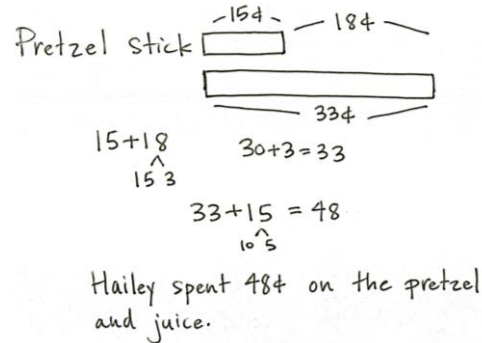 15¢
18¢
Pretzel stick
33¢
15+18
30+3=33
15 3
33+15 = 48
10 5
Hailey spent 48¢ on the pretzel
and juice.